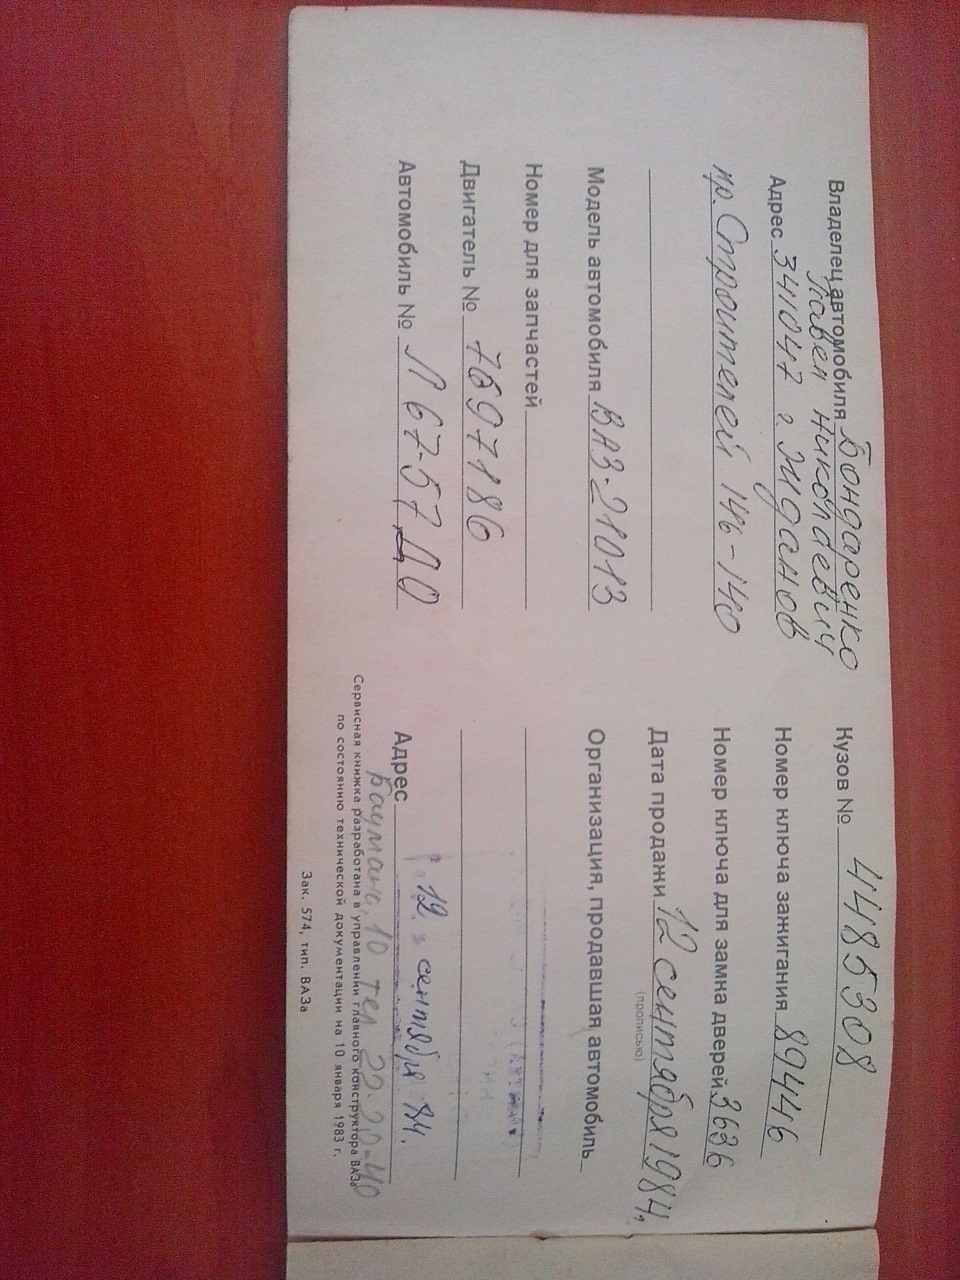 Владелец автомобиля Бондаренко
Павел Николаевич
Адрес 341047 г. Жданов
пр. Строителей 146-140
Модель автомобиля ВАЗ-21013
Номер для запчастей
Двигатель № 7697186
Автомобиль № Л 67-57 ДО
Кузов № 4485308
Номер ключа зажигания 89446
Номер ключа для замка дверей 3636
Дата продажи 12 сентября 1984г
(прописью)
Организация, продавшая автомобиль
12 » сентября 84.
Адрес
Баумана, 10 тел 22-20-40
Сервисная книжка разработана в управлении главного конструктора ВАЗа
по состоянию технической документации на 10 января 1983 г.
Зак. 574, тип. ВАЗа